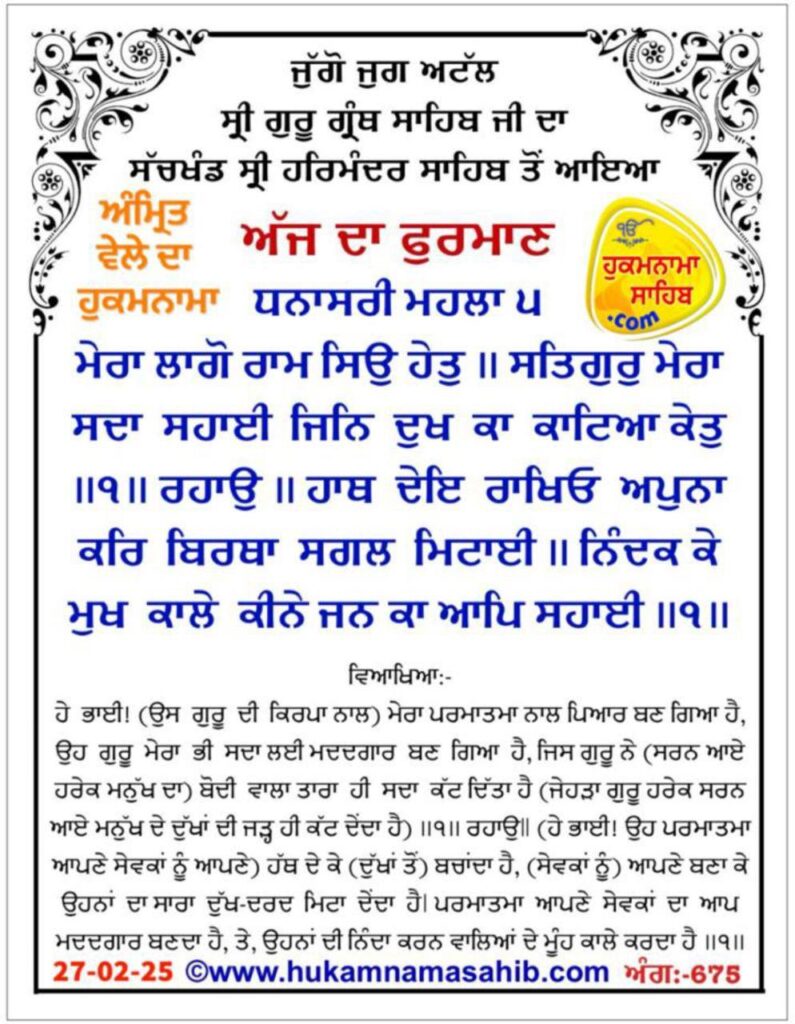 ਜੁੱਗੋ ਜੁਗ ਅਟੱਲ
ਸ੍ਰੀ ਗੁਰੂ ਗ੍ਰੰਥ ਸਾਹਿਬ ਜੀ ਦਾ
ਸੱਚਖੰਡ ਸ੍ਰੀ ਹਰਿਮੰਦਰ ਸਾਹਿਬ ਤੋਂ ਆਇਆ
ਅੰਮ੍ਰਿਤ
ਵੇਲੇ ਦਾ
ਹੁਕਮਨਾਮਾ
ਅੱਜ ਦਾ ਫੁਰਮਾਣ
ੴ
ਹੁਕਮਨਾਮਾ
ਸਾਹਿਬ
.com
ਧਨਾਸਰੀ ਮਹਲਾ ੫
ਮੇਰਾ ਲਾਗੋ ਰਾਮ ਸਿਉ ਹੇਤੁ ॥ ਸਤਿਗੁਰੁ ਮੇਰਾ
ਸਦਾ ਸਹਾਈ ਜਿਨਿ ਦੁਖ ਕਾ ਕਾਟਿਆ ਕੇਤੁ
॥੧॥ ਰਹਾਉ ॥ ਹਾਥ ਦੇਇ ਰਾਖਿਓ ਅਪੁਨਾ
ਕਰਿ ਬਿਰਥਾ ਸਗਲ ਮਿਟਾਈ ॥ ਨਿੰਦਕ ਕੇ
ਮੁਖ ਕਾਲੇ ਕੀਨੇ ਜਨ ਕਾ ਆਪਿ ਸਹਾਈ ॥੧॥
ਵਿਆਖਿਆ:-
ਹੇ ਭਾਈ! (ਉਸ ਗੁਰੂ ਦੀ ਕਿਰਪਾ ਨਾਲ) ਮੇਰਾ ਪਰਮਾਤਮਾ ਨਾਲ ਪਿਆਰ ਬਣ ਗਿਆ ਹੈ,
ਉਹ ਗੁਰੂ ਮੇਰਾ ਭੀ ਸਦਾ ਲਈ ਮਦਦਗਾਰ ਬਣ ਗਿਆ ਹੈ, ਜਿਸ ਗੁਰੂ ਨੇ (ਸਰਨ ਆਏ
ਹਰੇਕ ਮਨੁੱਖ ਦਾ) ਬੋਦੀ ਵਾਲਾ ਤਾਰਾ ਹੀ ਸਦਾ ਕੱਟ ਦਿੱਤਾ ਹੈ (ਜੇਹੜਾ ਗੁਰੂ ਹਰੇਕ ਸਰਨ
ਆਏ ਮਨੁੱਖ ਦੇ ਦੁੱਖਾਂ ਦੀ ਜੜ੍ਹ ਹੀ ਕੱਟ ਦੇਂਦਾ ਹੈ) ॥੧॥ ਰਹਾਉ॥ (ਹੇ ਭਾਈ! ਉਹ ਪਰਮਾਤਮਾ
ਆਪਣੇ ਸੇਵਕਾਂ ਨੂੰ ਆਪਣੇ) ਹੱਥ ਦੇ ਕੇ (ਦੁੱਖਾਂ ਤੋਂ) ਬਚਾਂਦਾ ਹੈ, (ਸੇਵਕਾਂ ਨੂੰ) ਆਪਣੇ ਬਣਾ ਕੇ
ਉਹਨਾਂ ਦਾ ਸਾਰਾ ਦੁੱਖ-ਦਰਦ ਮਿਟਾ ਦੇਂਦਾ ਹੈ। ਪਰਮਾਤਮਾ ਆਪਣੇ ਸੇਵਕਾਂ ਦਾ ਆਪ
ਮਦਦਗਾਰ ਬਣਦਾ ਹੈ, ਤੇ, ਉਹਨਾਂ ਦੀ ਨਿੰਦਾ ਕਰਨ ਵਾਲਿਆਂ ਦੇ ਮੂੰਹ ਕਾਲੇ ਕਰਦਾ ਹੈ ॥੧॥
27-02-25 ©www.hukamnamasahib.com ਅੰਗ:-675